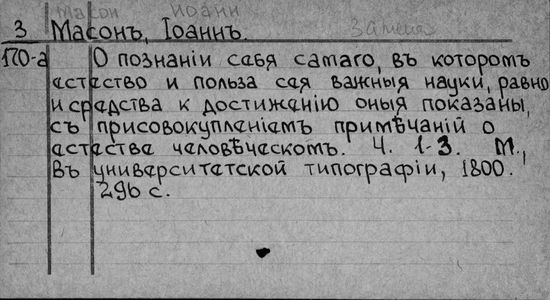 Масон Иоанн Замена
3 Масонъ, Іоаннъ.
170-а О познаніи себя самаго, въ которомъ
естество и польза сея важныя науки, равно
и средства к достиженію оныя показаны,
съ присовокупленіемъ примѣчаній о
естестве человѣческомъ. Ч. 1-3. М.,
Въ университетской типографіи, 1800.
296 с.